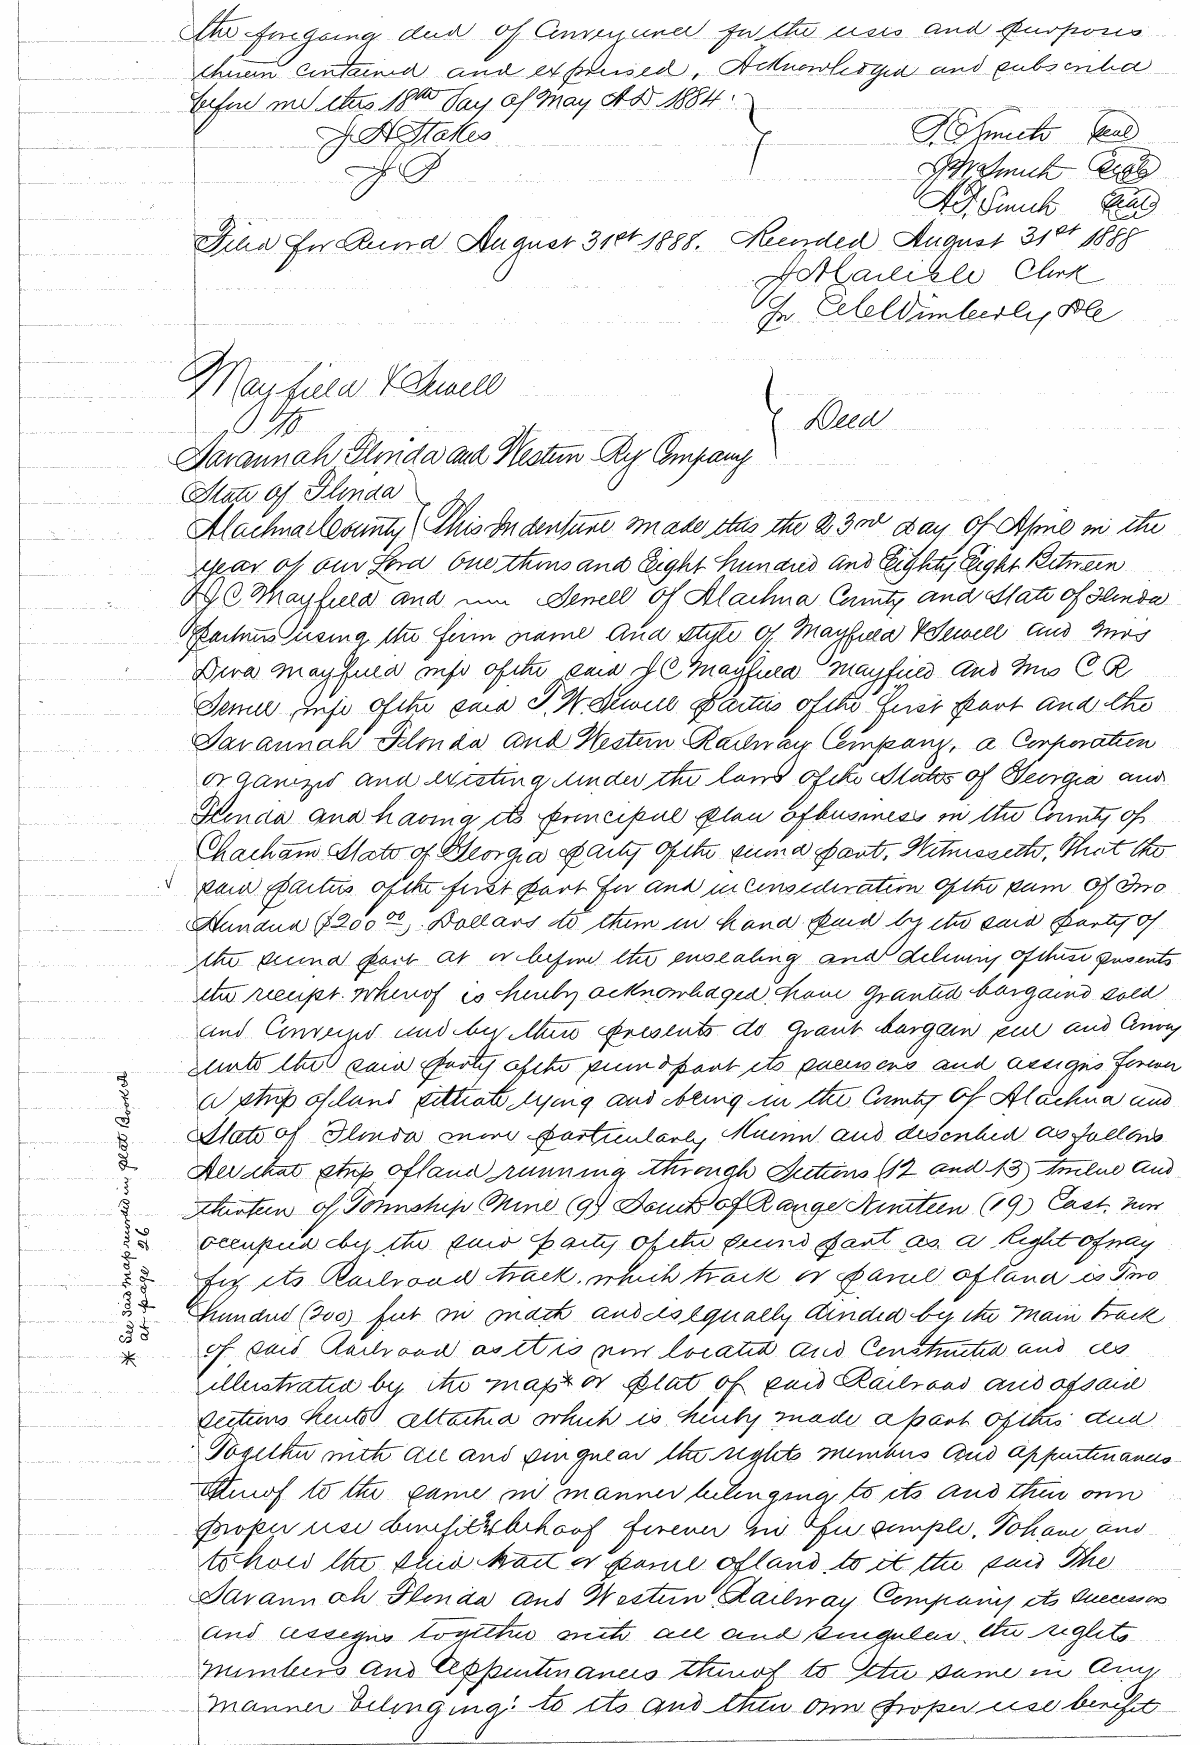 the foregoing deed of Conveyance for the uses and purposes
therein contained and expressed, Acknowledged and subscribed
before me this 18th Day of May A D 1884.
J A Stakes
J P
Smith Seal
J W Smith Seal
A. F. Smith Seal
Filed for Record August 31st 1888. Recorded August 31st 1888
J A Carlisle Clerk
Wimberly, DC
Mayfield & Sewell
To
Deed
Savannah Florida and Western Ry Company
State of Florida
Alachua County This Indenture made this the 23rd day of April in the
year of our Lord One thousand Eight hundred and Eighty Eight Between
J C Mayfield and Sewell of Alachua County and State of Florida
partners using the firm name and style of Mayfield & Sewell and Mrs
Diva Mayfield wife of the said J C Mayfield Mayfield and Mrs C R
Sewell wife of the said T. W. Sewell parties of the first part and the
Savannah Florida and Western Railway Company, a Corporation
organized and existing under the laws of the States of Georgia and
Florida and having its principal place of business in the County of
Chatham State of Georgia party of the second part, Witnesseth, That the
said parties of the first part for and in consideration of the sum of Two
Hundred ($200 00) Dollars to them in hand paid by the said party of
the second part at or before the ensealing and delivery of these presents
the receipt whereof is hereby acknowledged, have granted bargained sold
and Conveyed and by these presents do grant bargain sell and Convey
unto the said party of the second part its successors and assigns forever
a strip of land situate lying and being in the County of Alachua and
State of Florida more particularly Known and described as follows
All that strip of land running through Sections (12 and 13) twelve and
thirteen of Township Nine (9) South of Range Nineteen (19) East, now
occupied by the said party of the second part as a Right of way
for its Railroad track, which track or parcel of land is Two
hundred (200) feet in width and is equally divided by the main track
of said Railroad as it is now located and Constructed and as
illustrated by the map* or plat of said Railroad and of said
sections hereto attached which is hereby made a part of this deed
Together with all and singular the rights members and appurtenances
thereof to the same in manner belonging to its and their own
proper use benefit & behoof forever in fee simple, To have and
to hold the said tract or parcel of land to it the said The
Savannah Florida and Western Railway Company its successors
and assigns together with all and singular the rights
members and appurtenances thereof to the same in any
manner belonging: to its and their own proper use benefit
* See said map recorded in plat Book A
at page 26